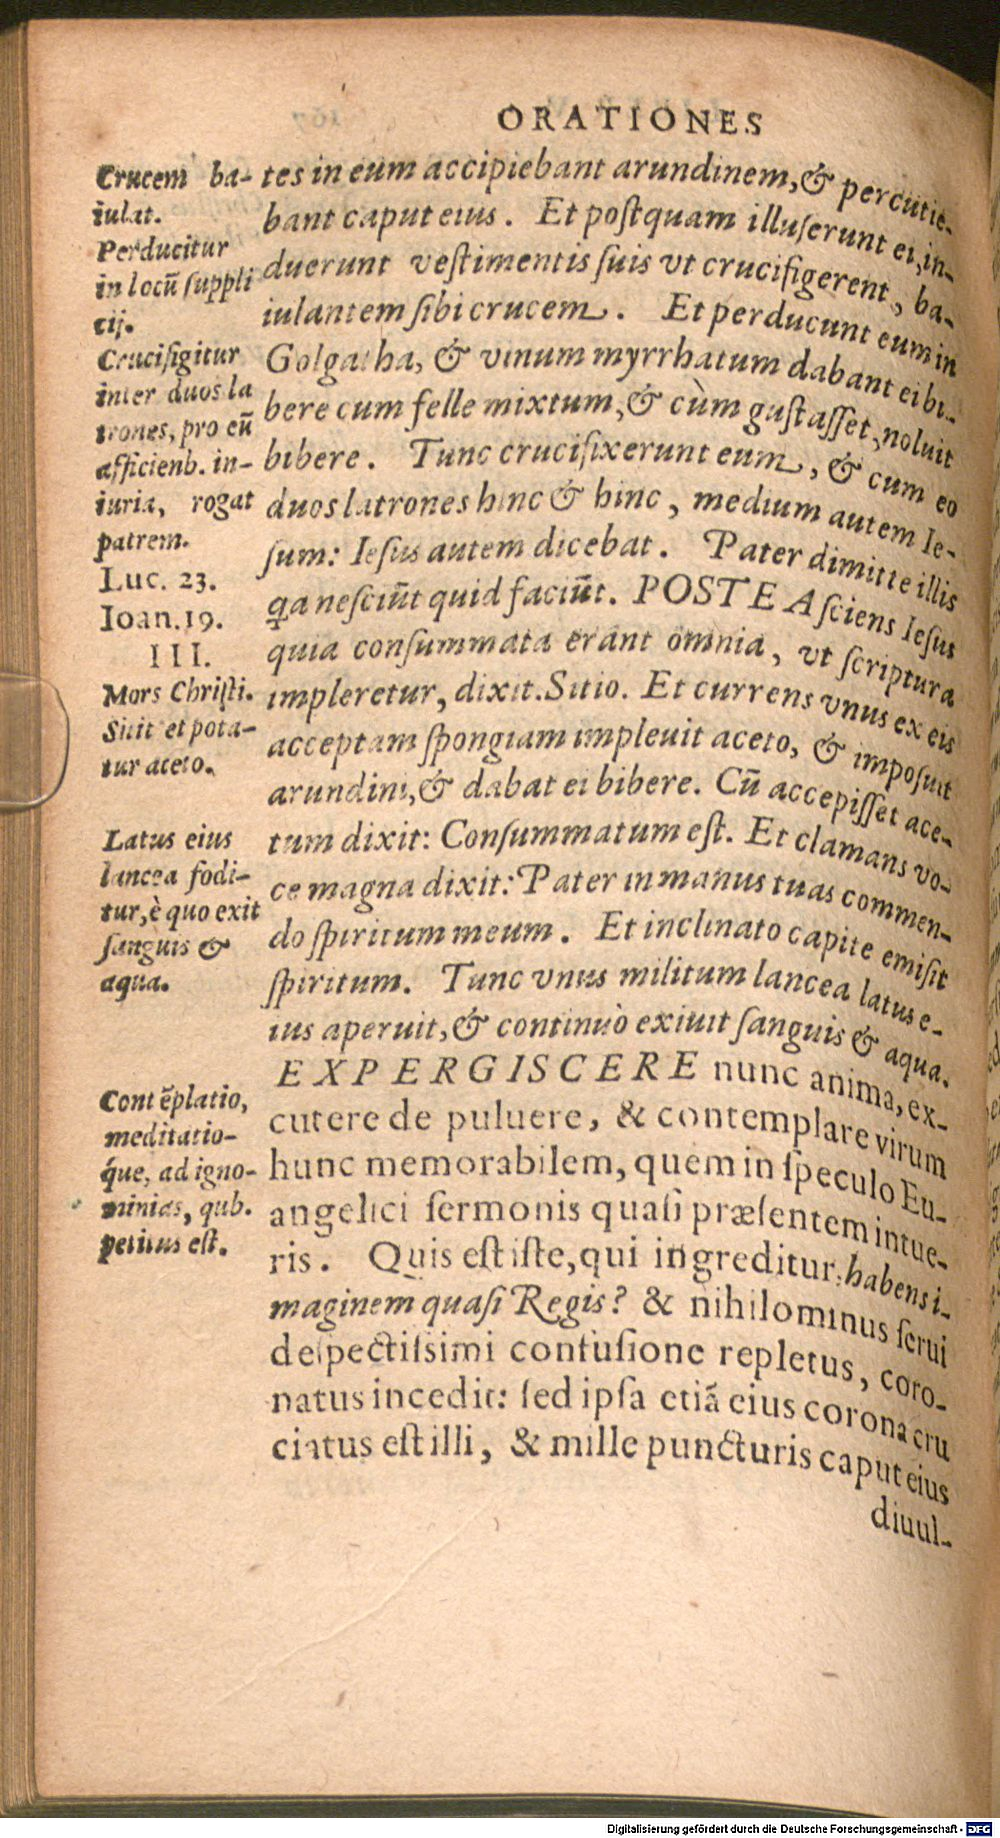 ORATIONES
Crucem ba-
iulat.
Perducitur
in locū ſuppli
cij.
Crucifigitur
inter duos la
trones, pro eū
afficienb. in-
iuria, rogat
patrem.
Luc. 23.
Ioan. 19.
III.
Mors Chriſti.
Sitit et pota-
tur aceto.
Latus eius
lancea fodi-
tur, è quo exit
ſanguis &
aqua.
Contēplatio,
meditatio-
q́ue, ad igno-
minias, qub.
petitus eſt.
tes in eum accipiebant arundinem, & percutie-
bant caput eius. Et poſtquam illuſerunt ei, in-
duerunt veſtimentis ſuis vt crucifigerent, ba-
iulantem ſibi crucem. Et perducunt eum in
Golgatha, & vinum myrrhatum dabant ei bi-
bere cum felle mixtum, & cùm guſtaſſet, noluit
bibere. Tunc crucifixerunt eum, & cum eo
duos latrones hinc & hinc, medium autem Ie-
ſum: Ieſus autem dicebat. Pater dimitte illis
q̃a neſciūt quid faciūt. POSTEA ſciens Ieſus
quia conſummata erant omnia, vt ſcriptura
impleretur, dixit. Sitio. Et currens vnus ex eis
acceptam ſpongiam impleuit aceto, & impoſuit
arundini, & dabat ei bibere. Cū accepiſſet ace-
tum dixit: Conſummatum eſt. Et clamans vo-
ce magna dixit: Pater in manus tuas commen-
do ſpiritum meum. Et inclinato capite emiſit
ſpiritum. Tunc vnus militum lancea latus e-
ius aperuit, & continuò exiuit ſanguis & aqua.
EXPERGISCERE nunc anima, ex-
cutere de puluere, & contemplare virum
hunc memorabilem, quem in ſpeculo Eu-
angelici ſermonis quaſi præſentem intue-
ris. Quis eſt iſte, qui ingreditur, habens i-
maginem quaſi Regis? & nihilominus ſerui
deſpectiſſimi confuſione repletus, coro-
natus incedit: ſed ipſa etiā eius corona cru
ciatus eſt illi, & mille puncturis caput eius
diuul-
Digitalisierung gefördert durch die Deutsche Forschungsgemeinschaft - DFG